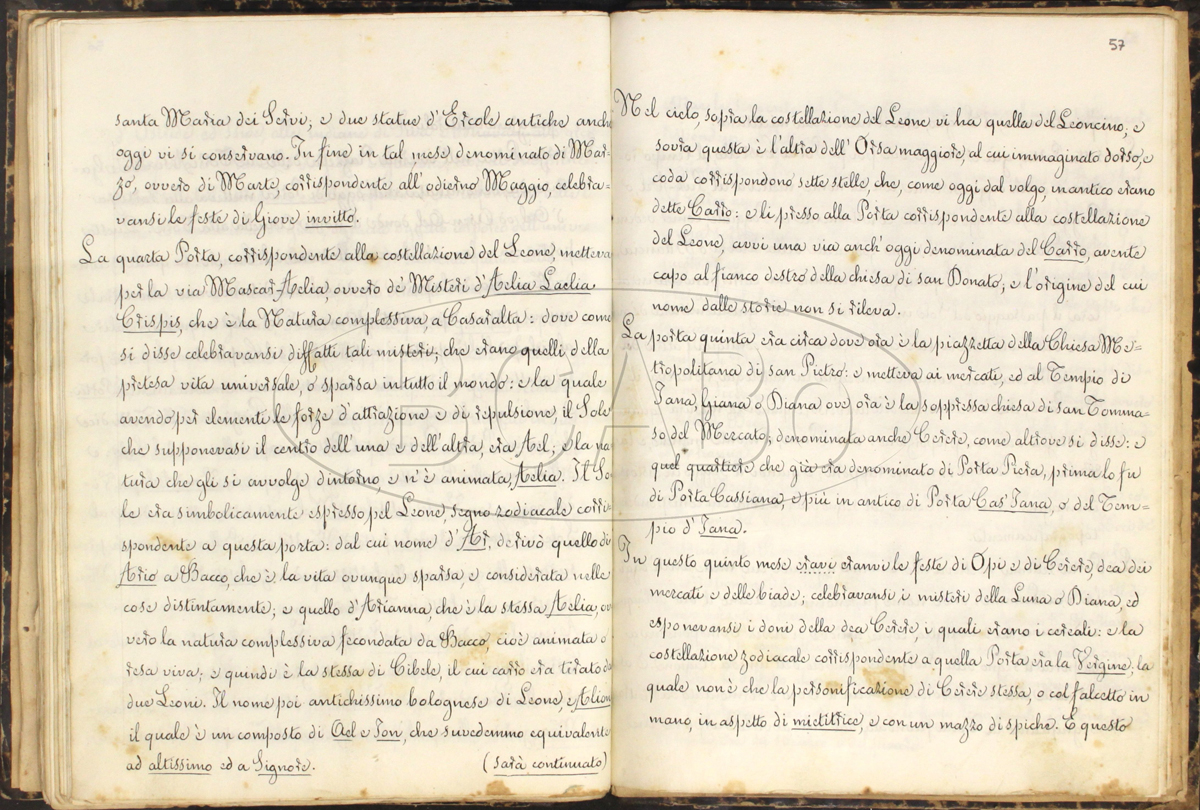 santa Maria dei Servi; e due statue d'Ercole antiche anche
oggi vi si conservano. In fine in tal mese denominato di Mar=
zo, ovvero di Marte, corrispondente all'odierno Maggio, celebra=
vansi le feste di Giove invitto.
La quarta Porta, corrispondente alla costellazione del Leone, metteva
per la via Mascar Aelia, ovvero de' Misteri d'Aelia Laelia
Crispis, che è la Natura complessiva, a Casaralta: dove come
si disse celebravansi diffatti tali misteri; che erano quelli della
pretesa vita universale, o sparsa in tutto il mondo: e la quale
avendo per elementi le forze d'attrazione e di repulsione, il Sole
che supponevasi il centro dell'una e dell'altra, era Ael; e la na
tura che gli si avvolge d'intorno, e n'è animata, Aelia. Il So-
le era simbolicamente espresso pel Leone, segno zodiacale corri-
spondente a questa porta: dal cui nome d'Ar, derivò quello di
Ario a Bacco, che è la vita ovunque sparsa, e considerata nelle
cose distintamente; e quello d'Arianna, che è la stessa Aelia, ov
vero la natura complessiva fecondata da Bacco, cioè animata o
resa viva; e quindi è la stessa di Cibele, il cui carro era tirato da
due Leoni. Il nome poi antichissimo bolognese di Leone, è Aelion
il quale è un composto di Ael e Ion, che suvedemmo equivalente
ad altissimo ed a Signore. (sarà continuato)
57
Nel cielo, sopra la costellazione del Leone vi ha quella del Leoncino, e
sovra questa è l'altra dell'Orsa maggiore, al cui immaginato dorso, e
coda corrispondono sette stelle che, come oggi dal volgo, in antico erano
dette Carro: e lì presso alla Porta corrispondente alla costellazione
del Leone, avvi una via anch'oggi denominata del Carro, avente
capo al fianco destro della chiesa di san Donato, e l'origine del cui
nome dalle storie non si rileva.
La porta quinta era circa dove ora è la piazzetta della Chiesa Me=
tropolitana di san Pietro: e metteva ai mercati, ed al Tempio di
Jana, Giana o Diana ove ora è la soppressa chiesa di san Tomma=
so del Mercato; denominata anche Cerere, come altrove si disse: e
quel quartiere che già era denominato di Porta Piera, prima lo fu
di Porta Cassiana, e più in antico di Porta Cas'Jana, o del Tem=
pio d'Jana.
In questo quinto mese eravi eranvi le feste di Opi e di Cerere, dea dei
mercati e delle biade; celebravansi i misteri della Luna o Diana, ed
esponevansi i doni della dea Cerere, i quali erano i cereali: e la
costellazione zodiacale corrispondente a quella Porta era la Vergine; la
quale non è che la personificazione di Cerere stessa, o col falcetto in
mano, in aspetto di mietitrice, e con un mazzo di spiche. E questo
BCABo